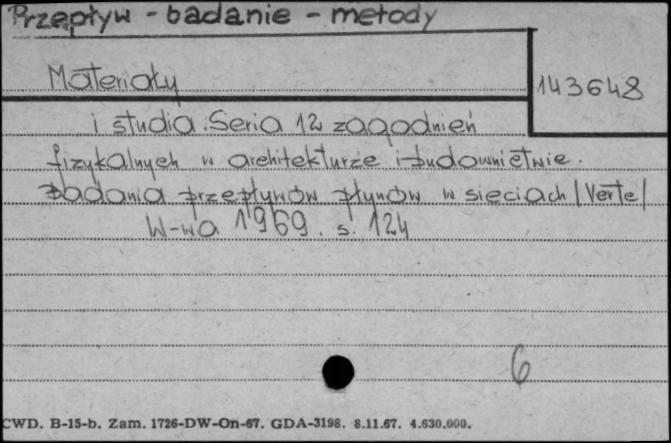 Przepływ - badanie - metody
Materiały
143648
i studia. Seria 12 zagadnień
fizykalnych w architekturze i budownictwie.
Badania przepływów płynów w sieciach /Verte/
W-wa 1969. s. 124
6
CWD. B-15-b. Zam. 1726-DW-On-67. GDA-3198. 8.11.67. 4.630.000.